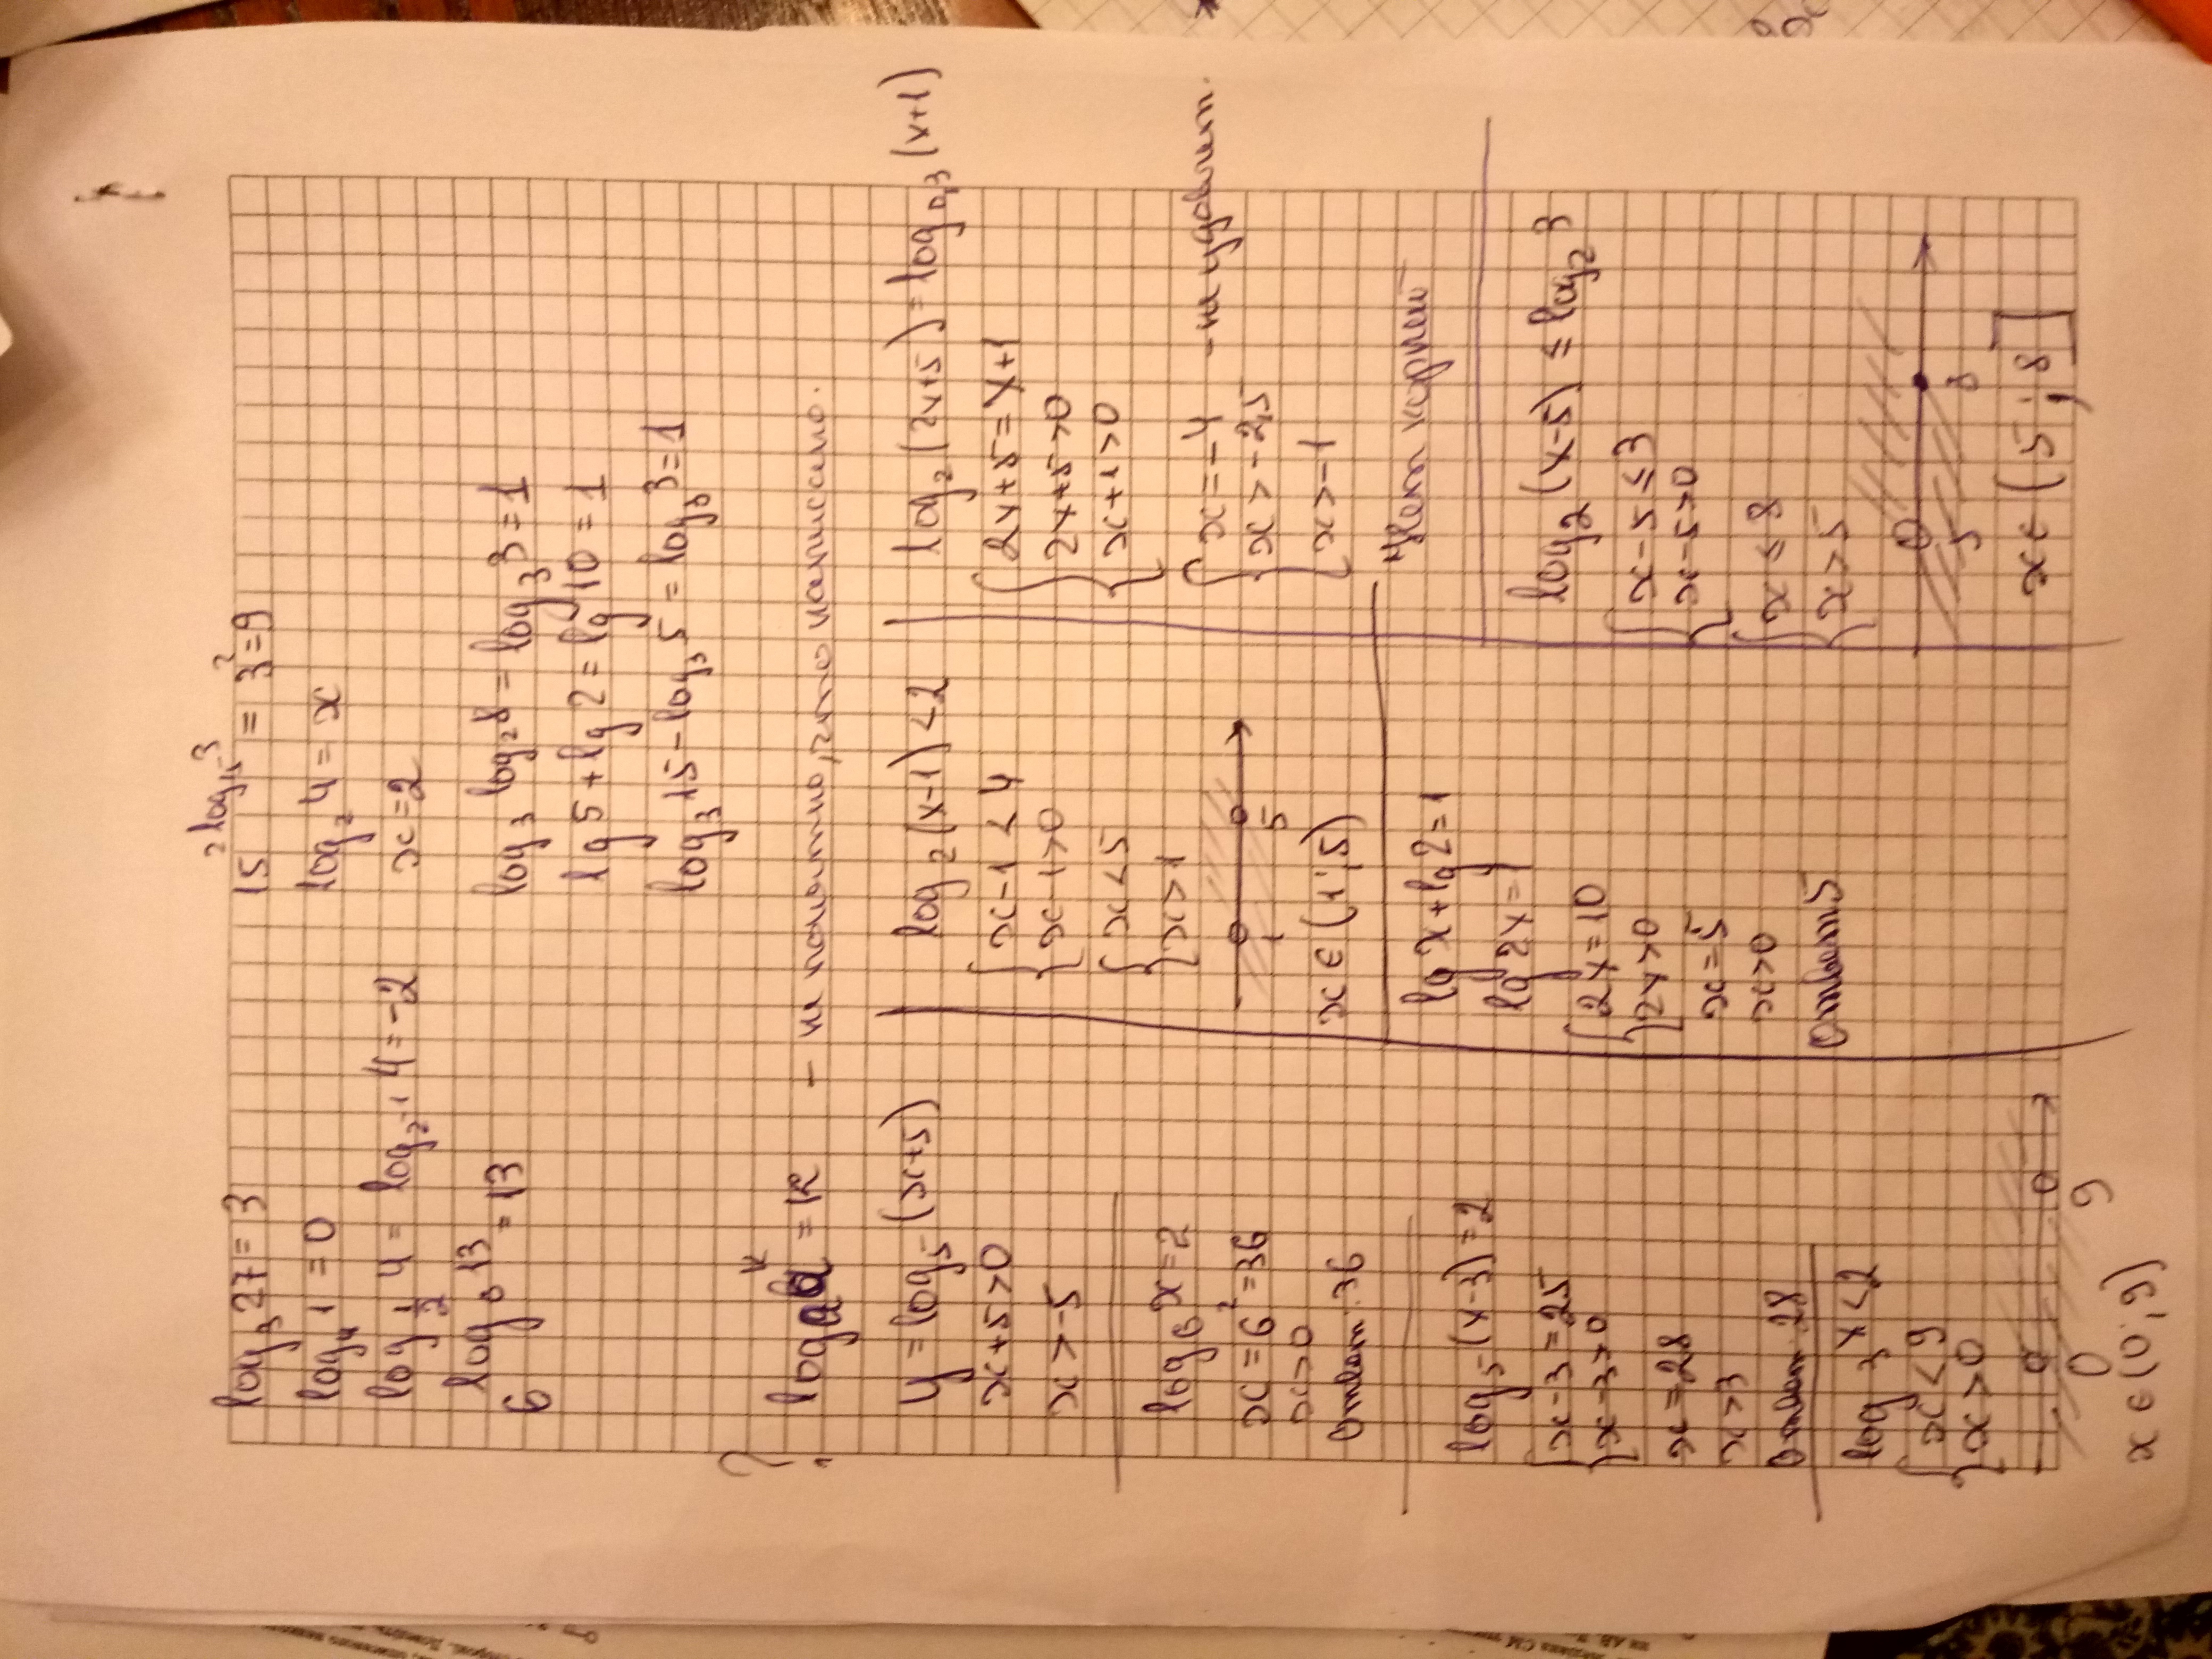 log₃27=3
log₄1=0
log_{1/2} 4 = log_{2⁻¹} 4 = -2
6^{log₆13} = 13
15^{2log₁₅3} = 3² = 9
log₂4 = x
x=2
log₃ log₂8 = log₃3=1
lg5 + lg2 = lg10 = 1
log₃15 - log₃5 = log₃3=1
? = k - не понятно, что написано.
y = log₅(x+5)
x+5>0
x>-5
log₆x=2
x=6²=36
x>0
Ответ: 36
log₅(x-3)=2
{x-3=25
x-3>0
x=28
x>3
Ответ: 28
log₃x<2
{x<9
x>0
0 9
x∈(0;9)
log₂(x-1)<2
{x-1<4
x-1>0
{x<5
x>1
1 5
x∈(1;5)
lgx+lg2=1
lg2x=1
{2x=10
2x>0
x=5
x>0
Ответ 5
(2x+5)=log₀,₃(x+1)
{2x+5=x+1
2x+5>0
x+1>0
{x=-4 - не удовлет.
x>-2,5
x>-1
Нет корней
log₂(x-5)≤log₂3
{x-5≤3
x-5>0
{x≤8
x>5
5 8
x∈(5;8]